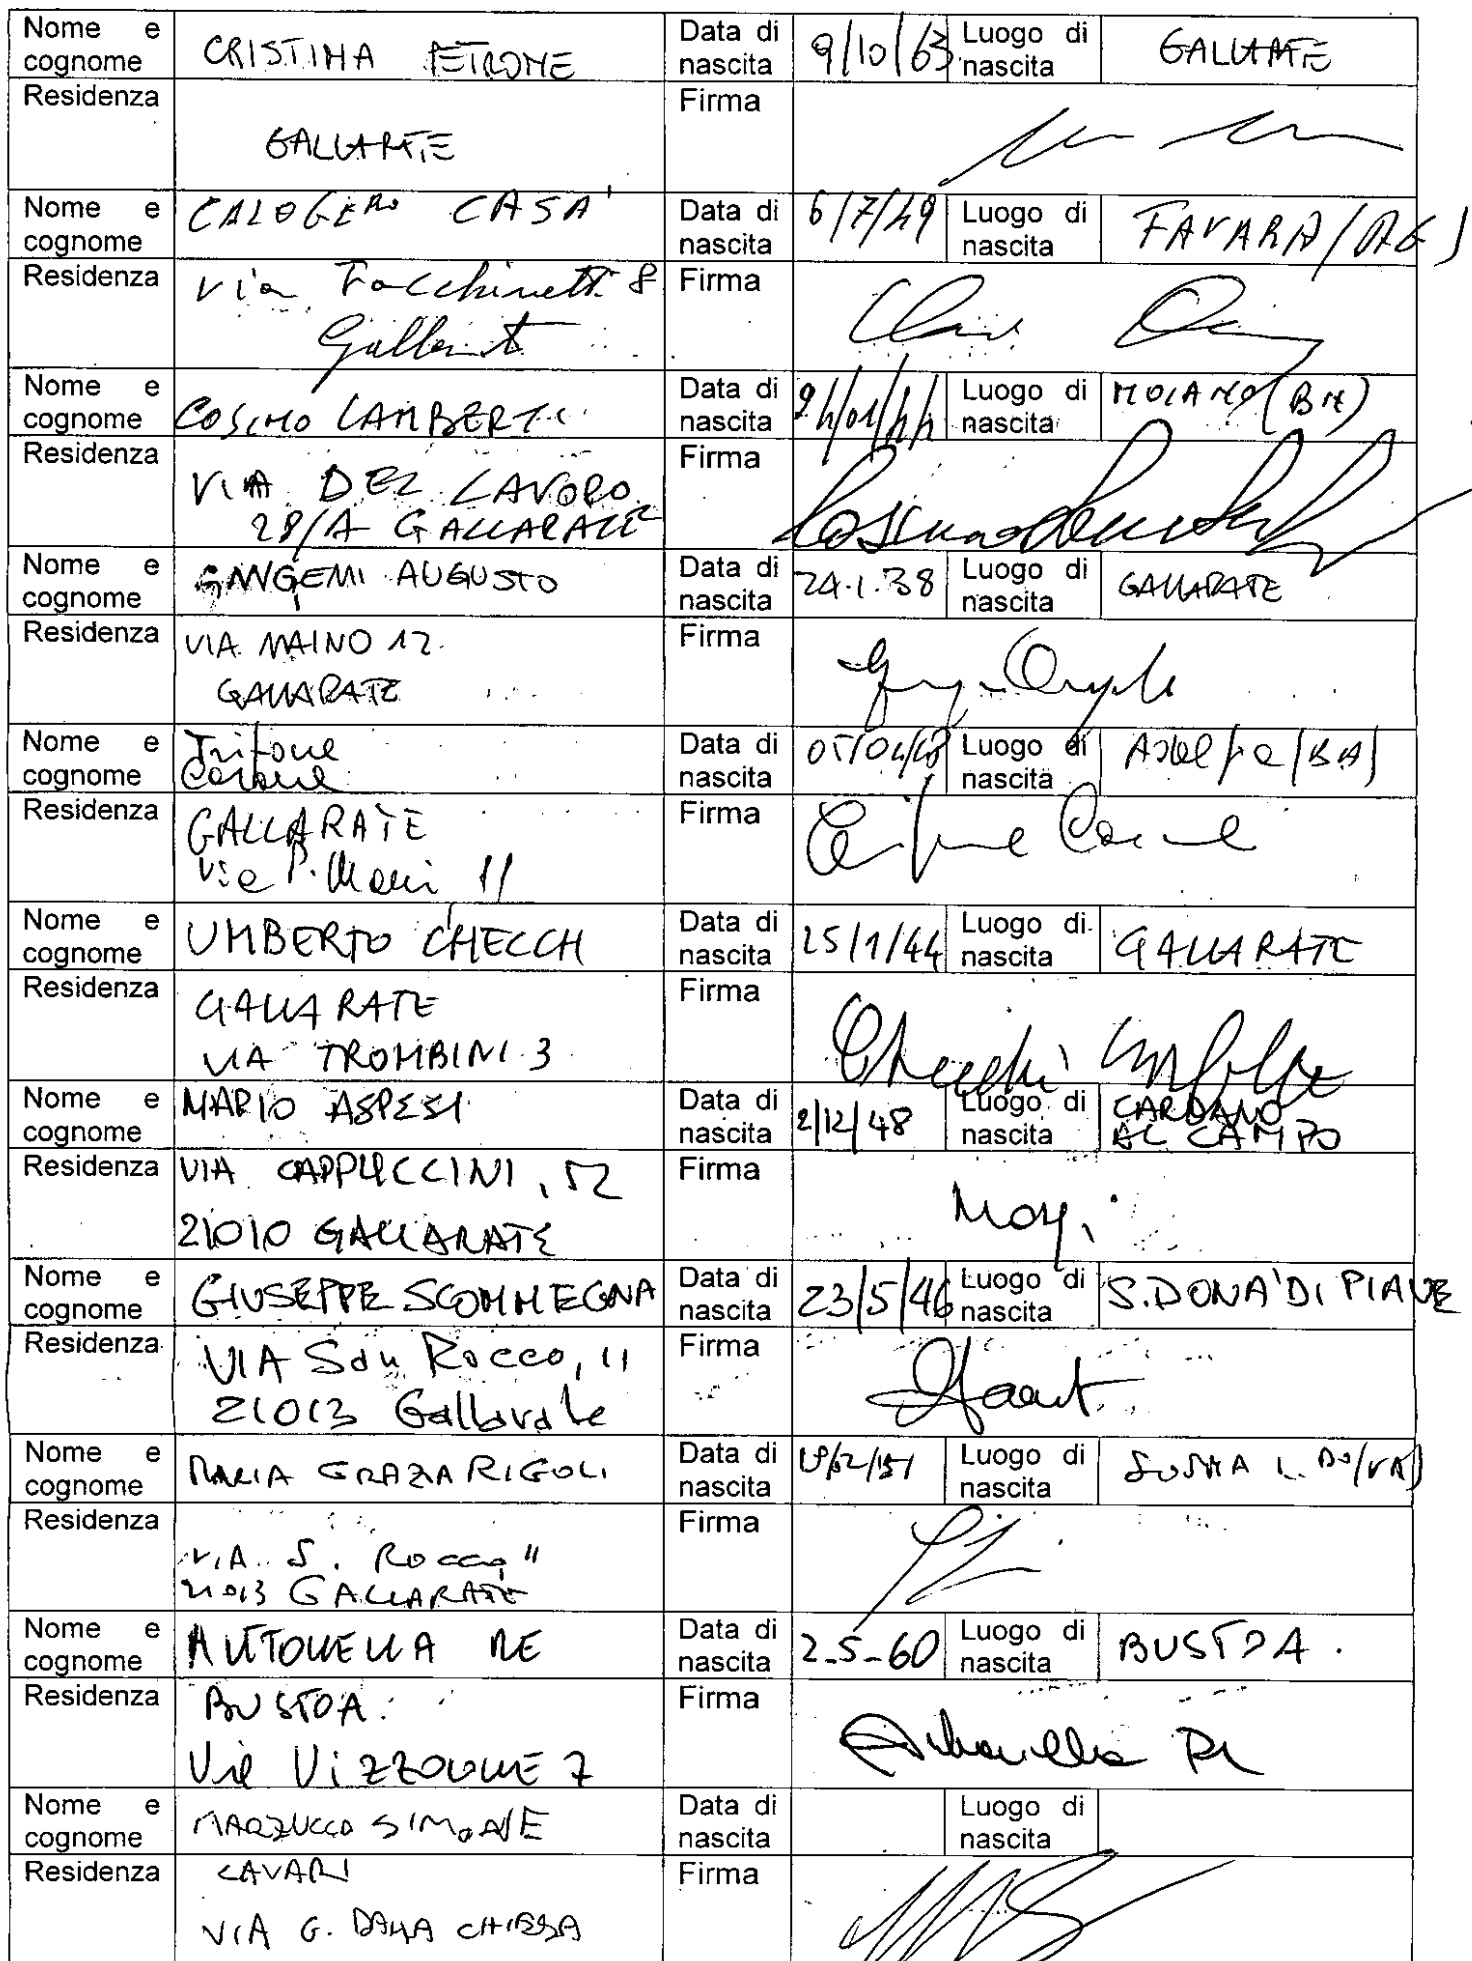 Nome e cognome CRISTINA PETRONE Data di nascita 9/10/63 Luogo di nascita GALLARATE
Residenza GALLARATE Firma
Nome e cognome CALOGERO CASA' Data di nascita 6/7/49 Luogo di nascita FAVARA (AG)
Residenza Via Facchinetti 8 Firma
Gallarate
Nome e cognome COSIMO LAMBERTI Data di nascita 24/01/44 Luogo di nascita MOIANO (BN)
Residenza VIA DEL LAVORO Firma Cosimo Lamberti
28/A GALLARATE
Nome e cognome GANGEMI AUGUSTO Data di nascita 24.1.38 Luogo di nascita GALLARATE
Residenza VIA MAINO 12 Firma
GALLARATE
Nome e cognome Trifone Carone Data di nascita 05/04/48 Luogo di nascita Adelfia (BA)
Residenza GALLARATE Firma Trifone Carone
Via P. 11
Nome e cognome UMBERTO CHECCHI Data di nascita 25/1/44 Luogo di nascita GALLARATE
Residenza GALLARATE Firma Checchi Umberto
VIA TROMBINI 3
Nome e cognome MARIO ASPESI Data di nascita 2/12/48 Luogo di nascita CARDANO AL CAMPO
Residenza VIA CAPPUCCINI, 52 Firma
21010 GALLARATE
Nome e cognome GIUSEPPE SCOMMEGNA Data di nascita 23/5/46 Luogo di nascita S. DONA' DI PIAVE
Residenza VIA San Rocco, 11 Firma
21013 Gallarate
Nome e cognome MARIA GRAZIA RIGOLI Data di nascita Luogo di nascita SOMMA L.DO (VA)
Residenza Firma
VIA S. Rocco, 11
21013 GALLARATE
Nome e cognome ANTONELLA RE Data di nascita 2-5-60 Luogo di nascita BUSTO A.
Residenza BUSTO A. Firma Antonella Re
Via VIZZOLONE 7
Nome e cognome MARZUCCO SIMONE Data di nascita Luogo di nascita
Residenza Firma
VIA G. DALLA CHIESA